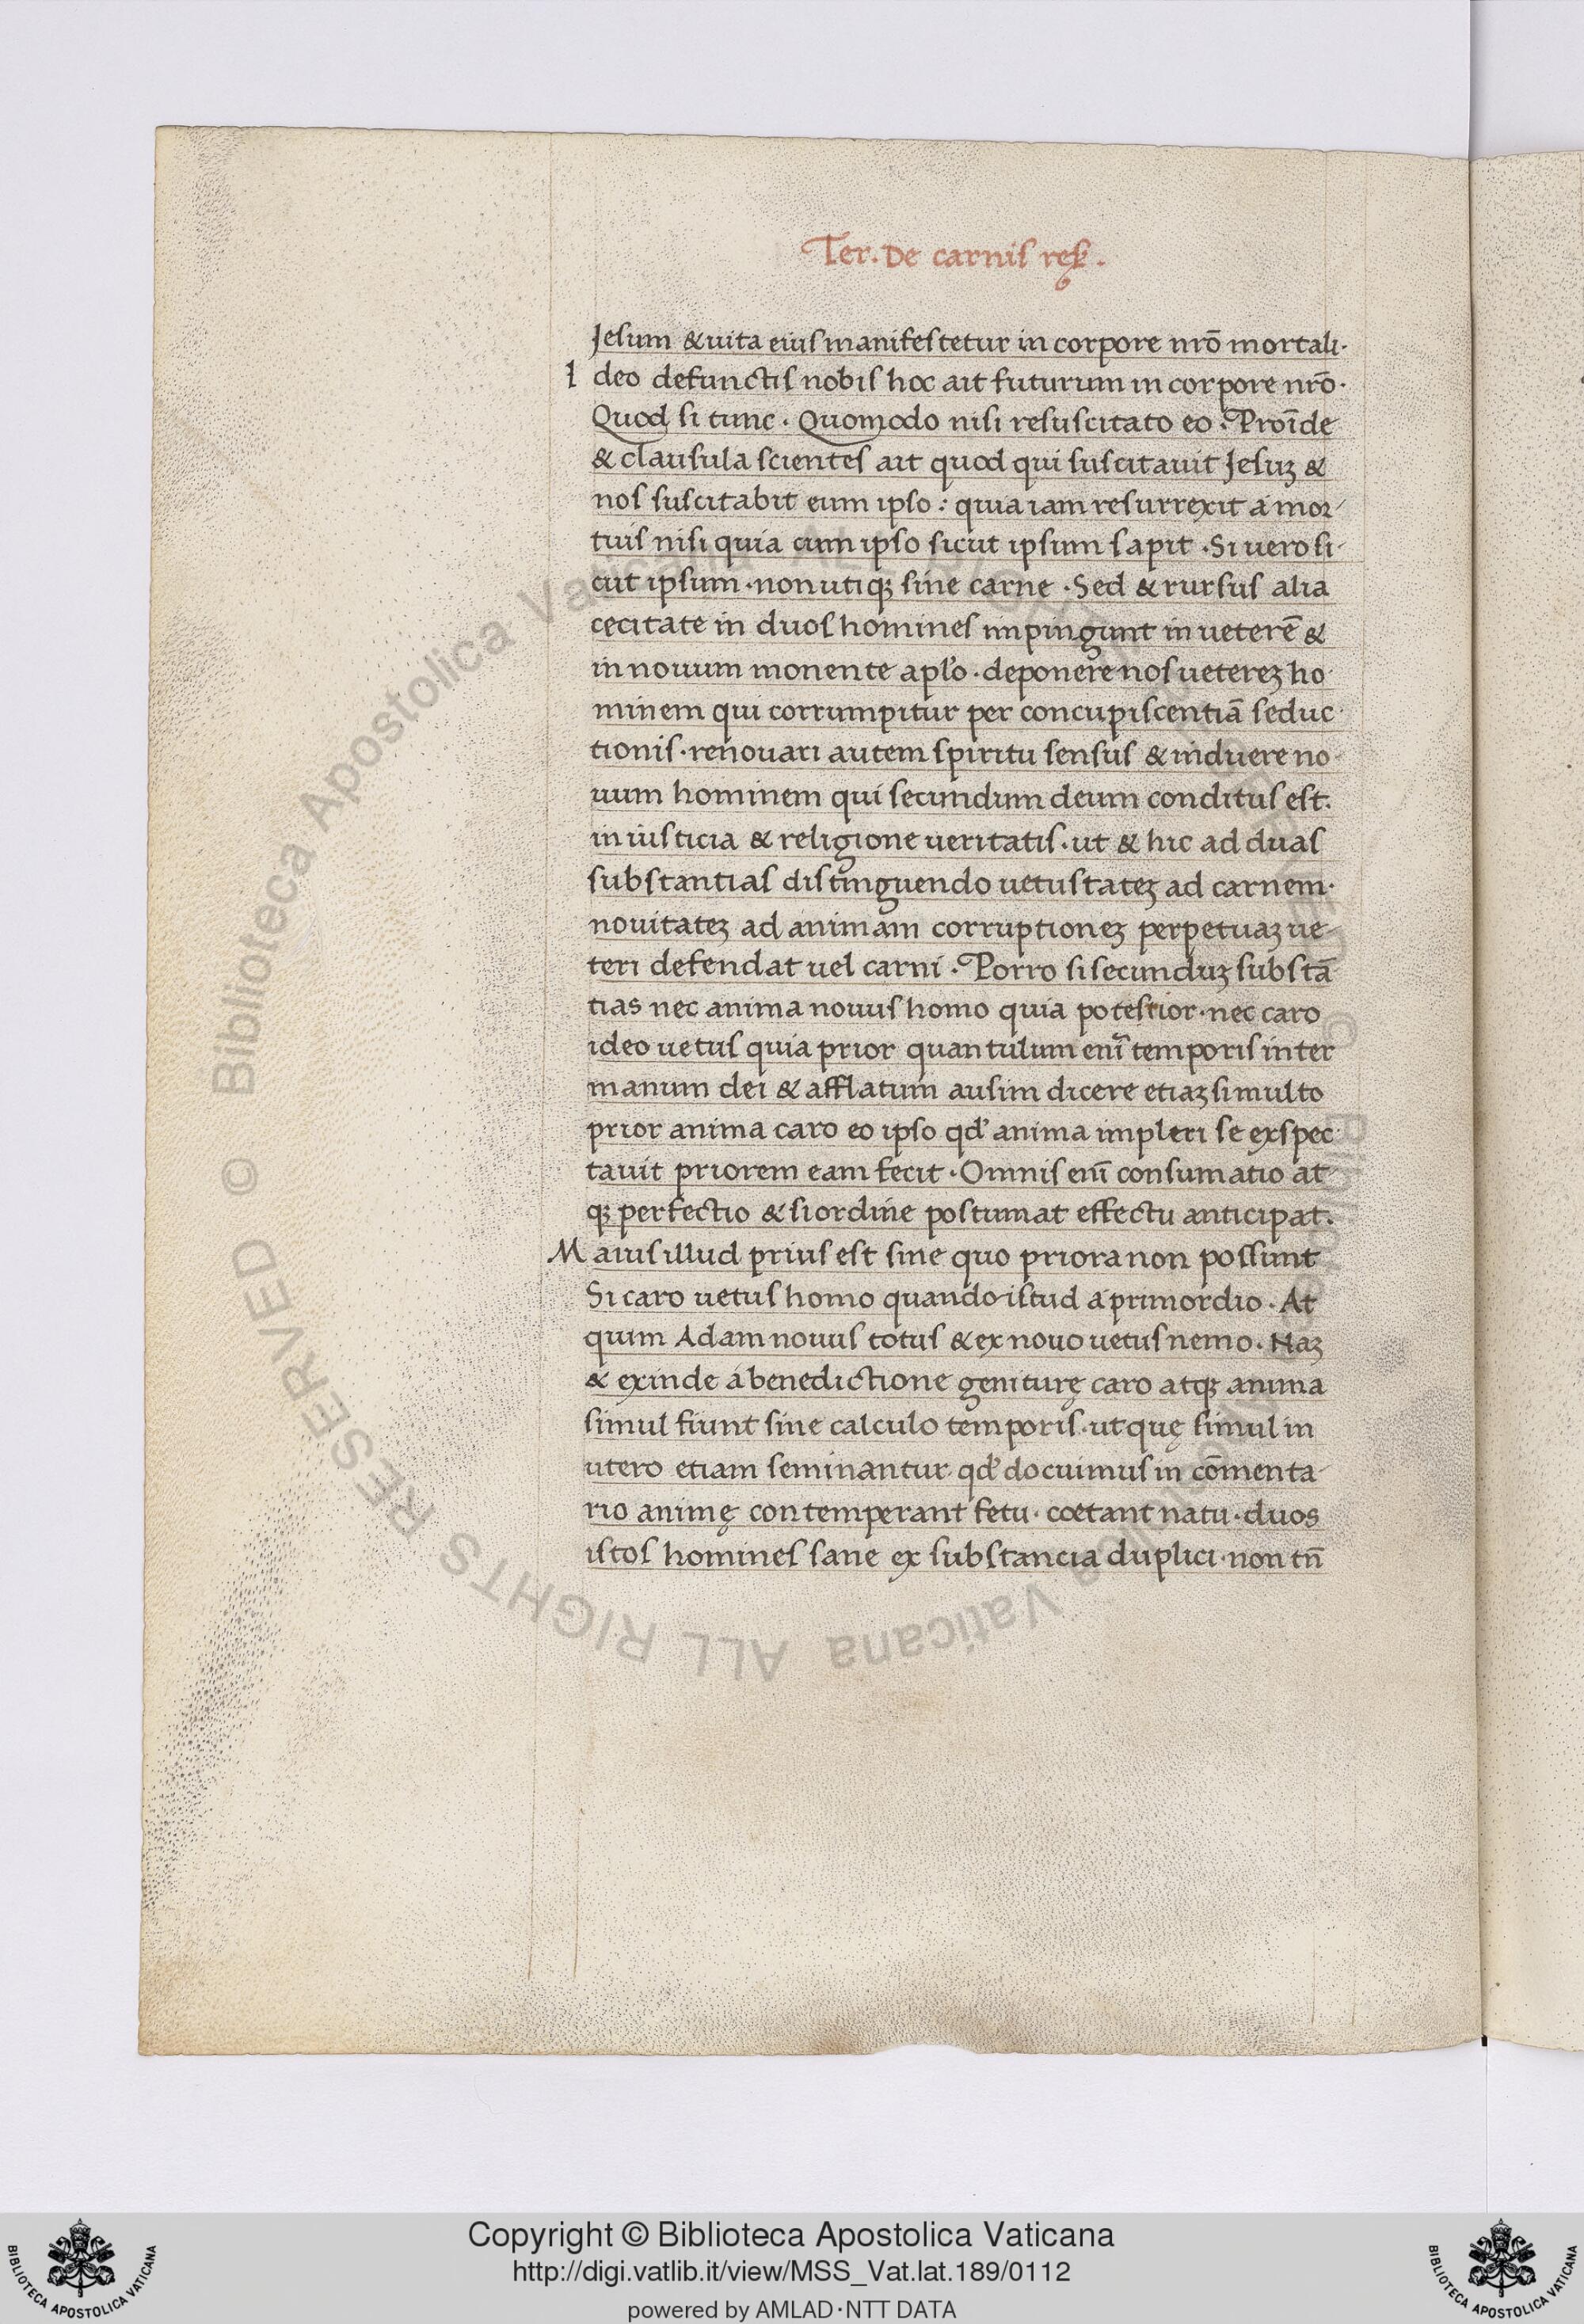 Ter. De carnis res.
Jesum & uita eius manifestetur in corpore nr̄o mortali·
Ideo defunctis nobis hoc ait futurum in corpore nr̄o·
Quod si tunc · Quomodo nisi resuscitato eo · Proīde
& clausula scientes ait quod qui suscitauit Jesuȝ &
nos suscitabit cum ipso : quia iam resurrexit a mor-
tuis nisi quia cum ipso sicut ipsum sapit · Si uero si-
cut ipsum · non utiqȝ sine carne · Sed & rursus alia
cecitate in duos homines impingunt in ueterē &
in nouum monente apl̄o · deponere nos uetereȝ ho-
minem qui corrumpitur per concupiscentiā seduc-
tionis · renouari autem spiritu sensus & induere no-
uum hominem qui secundum deum conditus est.
in iusticia & religione ueritatis · ut & hic ad duas
substantias distinguendo uetustateȝ ad carnem·
nouitateȝ ad animam corruptioneȝ perpetuaȝ ue-
teri defendat uel carni · Porro si secunduȝ substā
tias nec anima nouus homo quia potestior · nec caro
ideo uetus quia prior quantulum enī temporis inter
manum dei & afflatum ausim dicere etiaȝ si multo
prior anima caro eo ipso qd' anima impleri se exspec-
tauit priorem eam fecit · Omnis enī consumatio at-
qȝ perfectio & si ordine postumat effectu anticipat.
Maius illud prius est sine quo priora non possunt
Si caro uetus homo quando istud a primordio · At
quum Adam nouus totus & ex nouo uetus nemo · Naȝ
& exinde a benedictione geniturę caro atqȝ anima
simul fiunt sine calculo temporis · ut quę simul in
utero etiam seminantur · qd' docuimus in cōmenta-
rio animę contemperant fetu · coetant natu · duos
istos homines sane ex substancia duplici · non tn̄
© Biblioteca Apostolica Vaticana ALL RIGHTS RESERVED
© Biblioteca Apostolica Vaticana ALL RIGHTS RESERVED
Copyright © Biblioteca Apostolica Vaticana
http://digi.vatlib.it/view/MSS_Vat.lat.189/0112
powered by AMLAD·NTT DATA
BIBLIOTECA APOSTOLICA VATICANA
BIBLIOTECA APOSTOLICA VATICANA